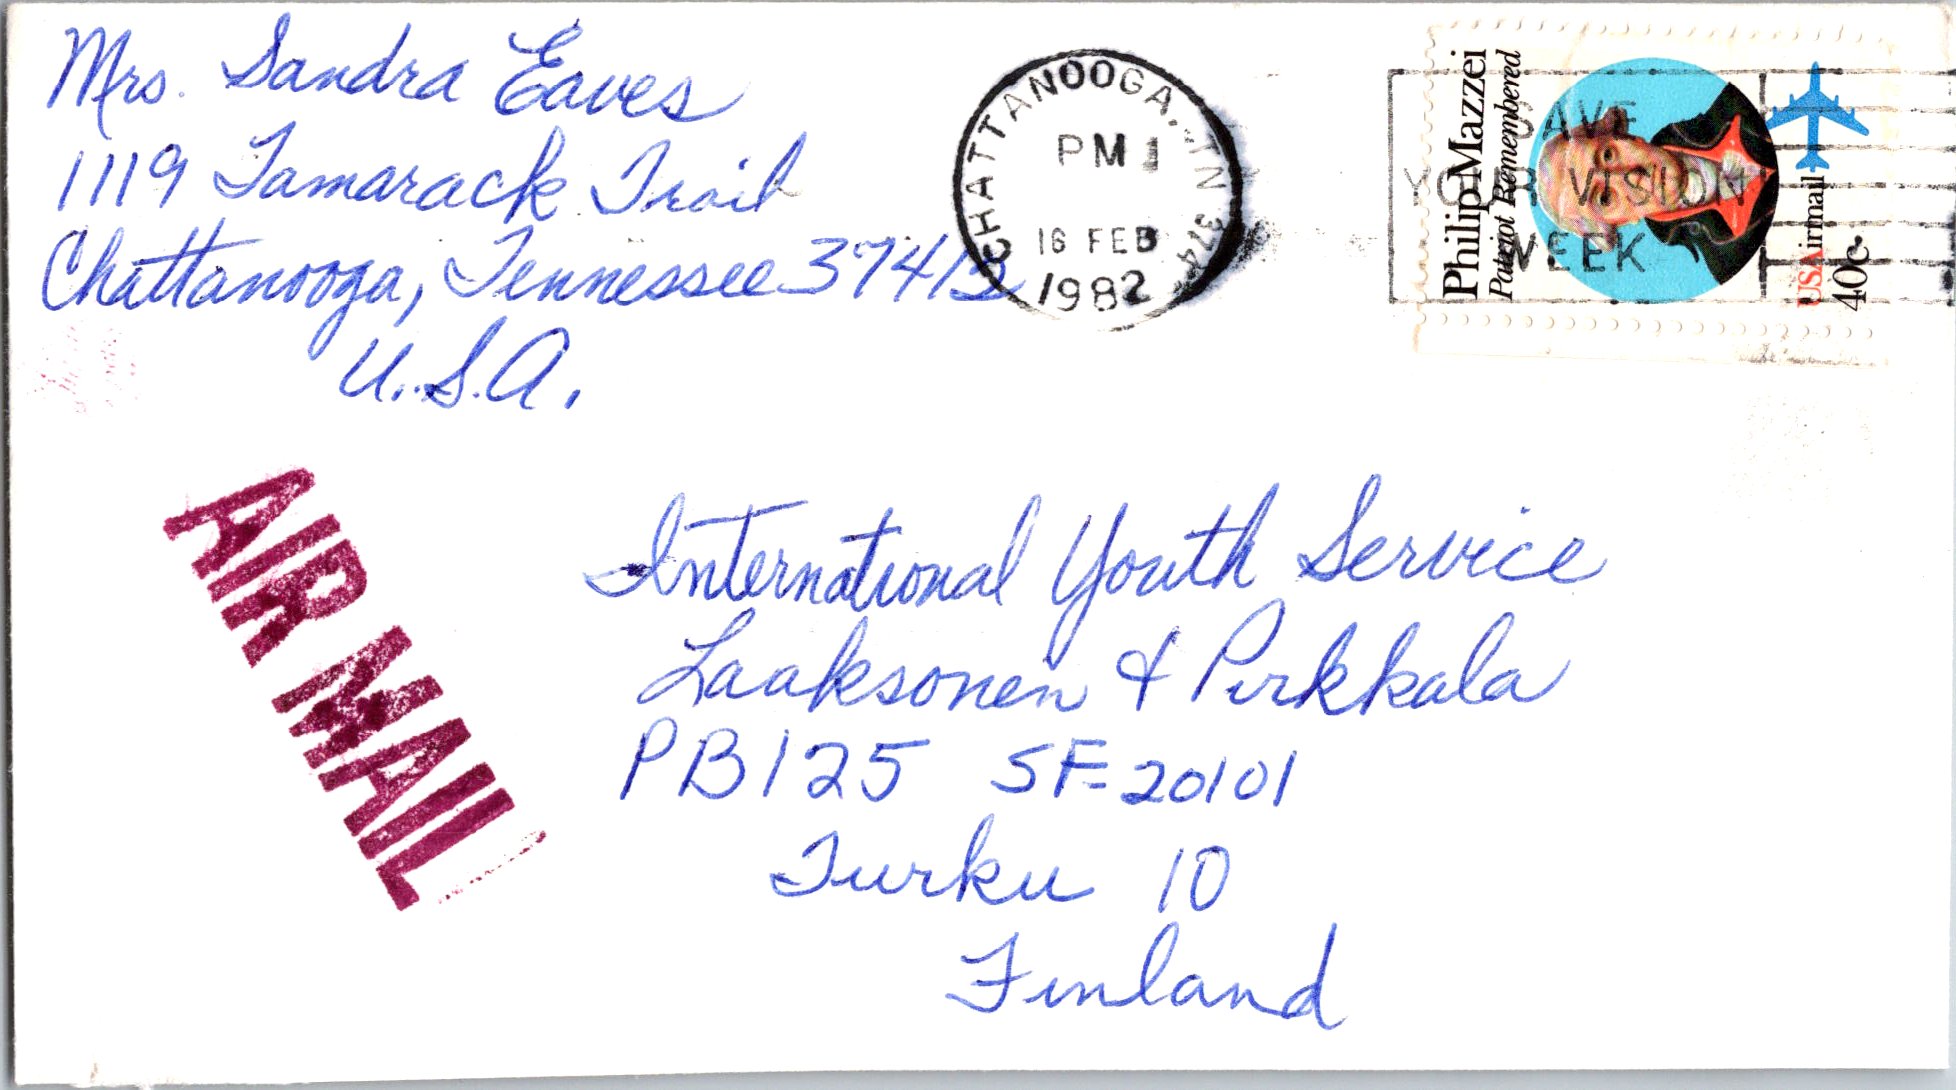 Mrs. Sandra Eaves
1119 Tamarack Trail
Chattanooga, Tennessee 37413
U.S.A.
CHATTANOOGA, TN 374
PM
16 FEB
1982
SAVE
YOUR VISION
WEEK
Philip Mazzei
Patriot Remembered
USAirmail
40c
AIR MAIL
International Youth Service
Laaksonen & Pirkkala
PB125 SF-20101
Turku 10
Finland